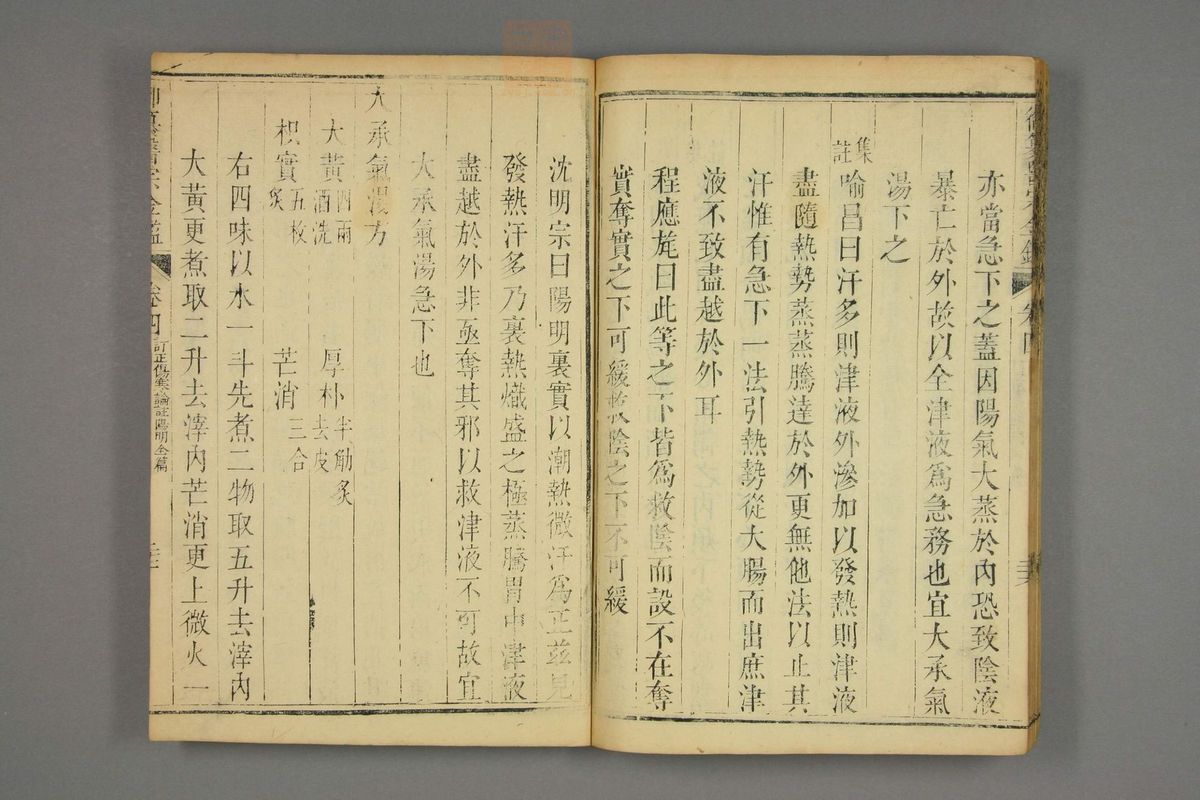 亦當急下之蓋因陽氣大蒸於內恐致陰液
暴亡於外故以全津液為急務也宜大承氣
湯下之
集註喻昌曰汗多則津液外滲加以發熱則津液
盡隨熱勢蒸蒸騰達於外更無他法以止其
汗惟有急下一法引熱勢從大腸而出庶津
液不致盡越於外耳
程應旄曰此等之下皆為救陰而設不在奪
實奪實之下可緩救陰之下不可緩
沈明宗曰陽明裏實以潮熱微汗為正茲見
發熱汗多乃裏熱熾盛之極蒸騰胃中津液
盡越於外非亟奪其邪以救津液不可故宜
大承氣湯急下也
大承氣湯方
大黃四兩酒洗 厚朴半觔炙去皮
枳實五枚炙 芒消三合
右四味以水一斗先煮二物取五升去滓內
大黃更煮取二升去滓內芒消更上微火一
御纂醫宗金鑑 卷四 訂正傷寒論註陽明全篇